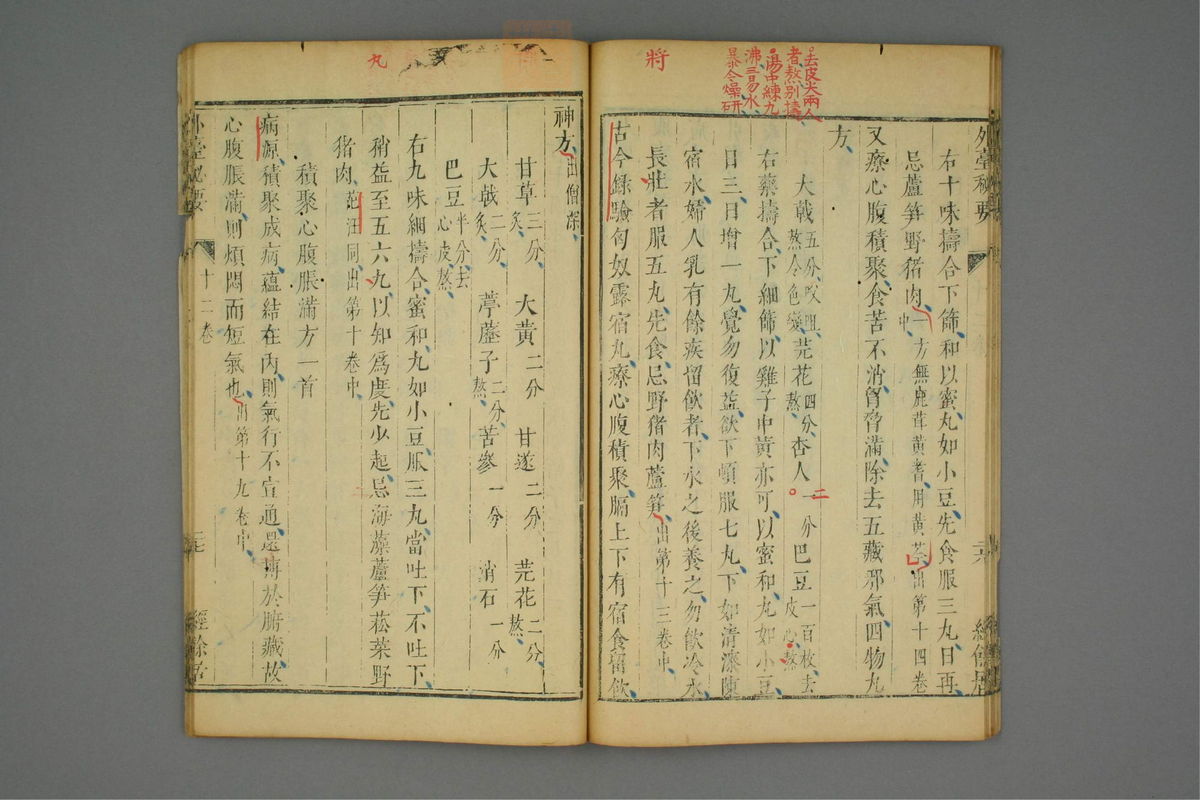 外臺秘要
右十味擣合下篩和以蜜丸如小豆先食服三丸日再
忌蘆笋野猪肉一方無鹿茸黃耆用黃芩出第十四卷中
又療心腹積聚食苦不消胷脅滿除去五藏邪氣四物丸
方
大戟五分㕮咀熬令色變 芫花四分熬 杏人一分 巴豆一百枚去皮心熬
右藥擣合下細篩以雞子中黃亦可以蜜和丸如小豆
日三日增一丸覺勿復益欲下頓服七丸下如清漆陳
宿水婦人乳有餘疾留飲者下水之後養之勿飲冷水
長壯者服五丸先食忌野猪肉蘆笋出第十三卷中
古今録驗匈奴露宿丸療心腹積聚膈上下有宿食留飲
去皮尖兩人
者熬別擣
湯中練九
沸三易水
暴令燥研
二
將
神方出僧深
甘草三分炙 大黃二分 甘遂二分 芫花二分熬
大戟二分炙 葶藶子二分熬 苦參一分 消石一分
巴豆半分去心皮熬
右九味細擣合蜜和丸如小豆服三丸當吐下不吐下
稍益至五六丸以知爲度先少起忌海藻蘆笋菘菜野
猪肉范汪同出第十卷中
積聚心腹脹滿方一首
病源積聚成病蘊結在內則氣行不宣通還搏於腑藏故
心腹脹滿則煩悶而短氣也出第十九卷中
丸
外臺秘要 十二卷 經餘居